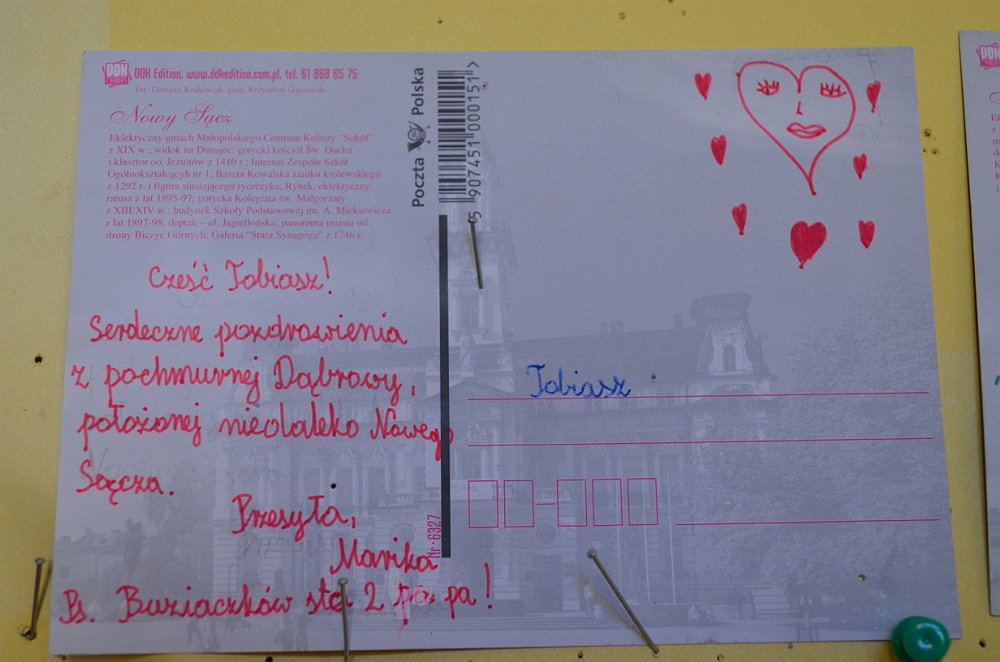 DDK Edition, www.ddkedition.com.pl, tel. 61 868 65 75
fot. Dariusz Krakowiak, proj. Krzysztof
Nowy Sącz
Eklektyczny gmach Małopolskiego Centrum Kultury "Sokół"
z XIX w.; widok na Dunajec; gotycki kościół Św. Ducha
i klasztor oo. Jezuitów z 1410 r.; Internat Zespołu Szkół
Ogólnokształcących nr 1; Baszta Kowalska zamku królewskiego
z 1292 r. i figura siusiającego rycerzyka; Rynek, eklektyczny
ratusz z lat 1895-97; gotycka Kolegiata św. Małgorzaty
z XIII/XIV w.; budynek Szkoły Podstawowej im. A. Mickiewicza
z lat 1897-98; deptak – ul. Jagiellońska; panorama miasta od
strony Biczyc Górnych; Galeria "Stara Synagoga" z 1746 r.
Cześć Tobiasz!
Serdeczne pozdrowienia
z pochmurnej Dąbrowy,
położonej niedaleko Nowego
Sącza.
Przesyła,
Marika
Ps. Buziaczków sto 2 pa pa!
Poczta Polska
5 907451 000151 >
Nr: 6327
Tobiasz